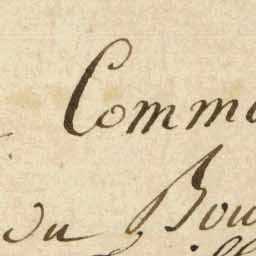 Comm
du Bou